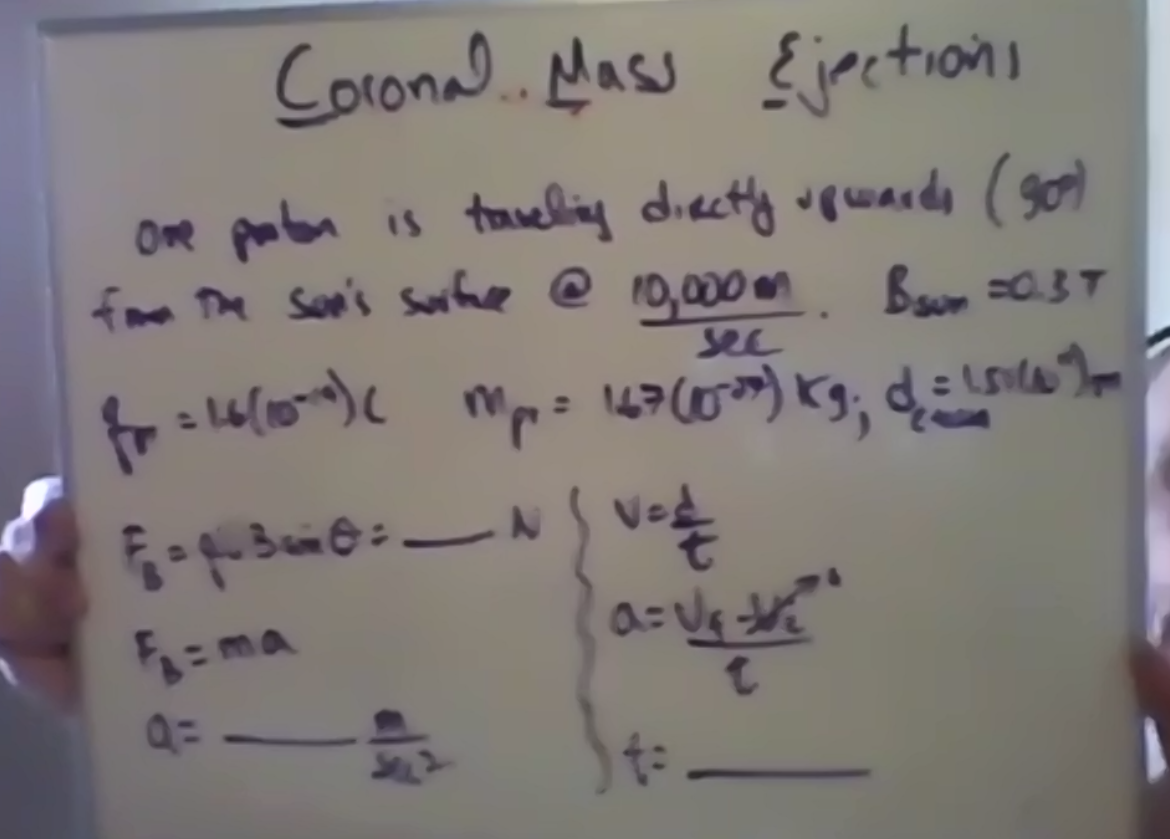 Coronal Mass Ejections
One proton is traveling directly upwards (90°)
from the Sun's surface @ 10,000 m/sec. B_sun = 0.3 T
q_p = 1.6(10^-19) C m_p = 1.67(10^-27) Kg;
F_B = qvB sin θ = ___ N
v = d/t
F_B = ma
a = ___ m/sec^2
t = ___